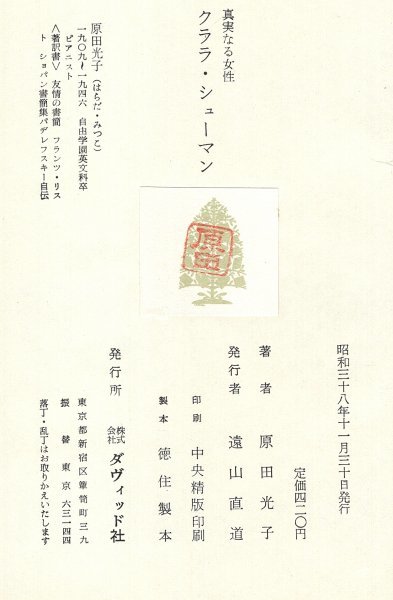 真実なる女性
クララ・シューマン
原田光子(はらだ・みつこ)
一九〇九~一九四六 自由学園英文科卒
ピアニスト
<著訳書> 友情の書簡 フランツ・リス
ト ショパン書簡集パデレフスキー自伝
原田
昭和三十八年十一月三十日発行
定価四二〇円
著者 原田光子
発行者 遠山直道
印刷 中央精版印刷
製本 徳住製本
発行所 株式会社 ダヴィッド社
東京都新宿区簞笥町三九
振替東京六三一四四
落丁・乱丁はお取りかえいたします